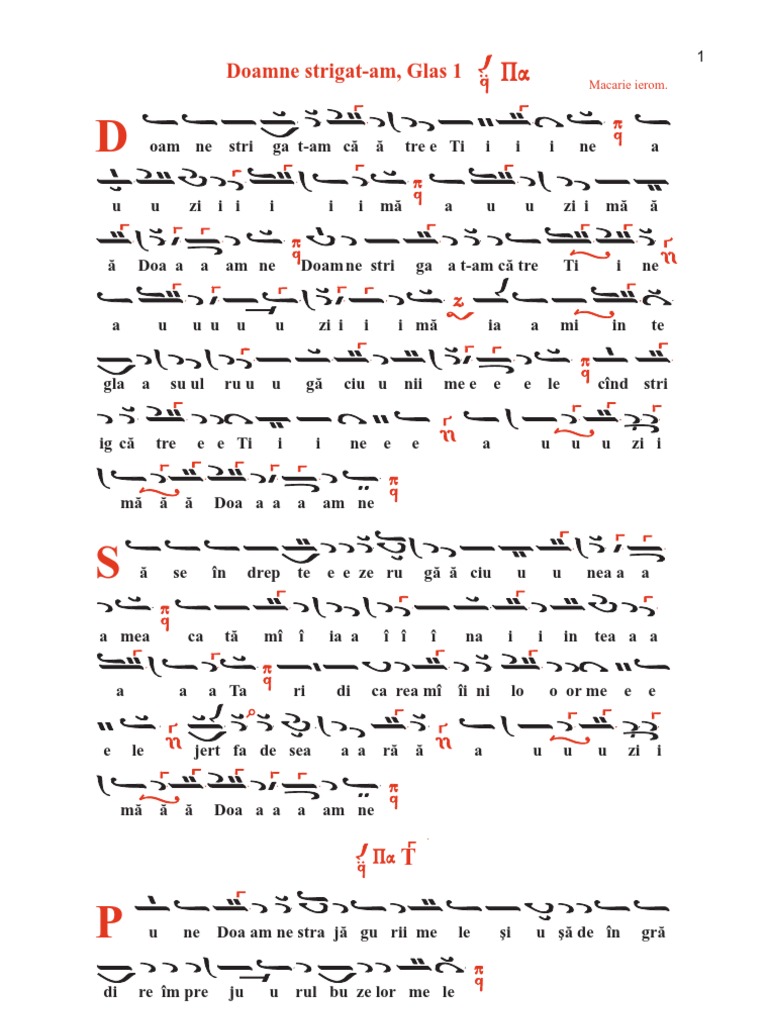 1
Doamne strigat-am, Glas 1 Πα
Macarie ierom.
D oam ne stri ga t-am că ă tre e Ti i i i ne a
u u zi i i i i i mă a u u zi i mă ă
ă Doa a a am ne Doam ne stri ga a t-am că tre Ti i ne
a u u u u u zi i i i mă ia a mi in te
gla a su ul ru u u gă ciu u nii me e e e e le cînd stri
ig că tre e e Ti i i ne e e a u u u zi i
mă ă ă Doa a a a am ne
S ă se în drep te e e ze ru gă ă ciu u u nea a a
a mea ca tă mî î ia a î î î na i i in tea a a
a a a Ta ri di ca rea mî îi ni lo o or me e e
e le jert fa de sea a a ră ă a u u u zi i
mă ă ă Doa a a a am ne
Πα
P u ne Doa am ne stra jă gu rii me le şi u şă de în gră
di re îm pre ju u rul bu ze lor me le